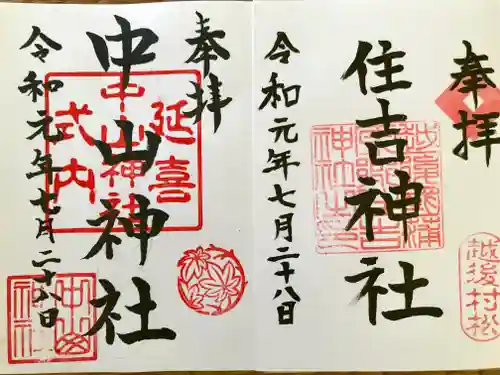 奉拝
住吉神社
令和元年七月二十八日
越後村松
奉拝
中山神社
延喜
式内
中山神社
令和元年七月二十八日
中山
神社